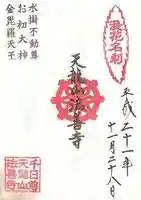 浪花名刹
平成二十一年
十一月二十八日
天龍山法善寺
水掛不動尊
お初大神
金毘羅天王
千日山
天龍山
法善寺